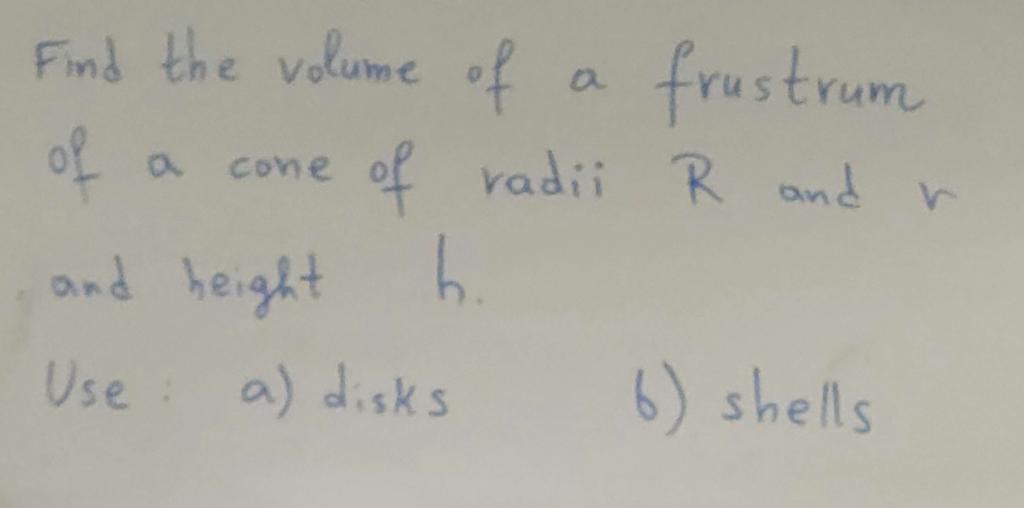 Find the volume of a frustrum
of a cone of radii R and r
and height h.
Use : a) disks b) shells